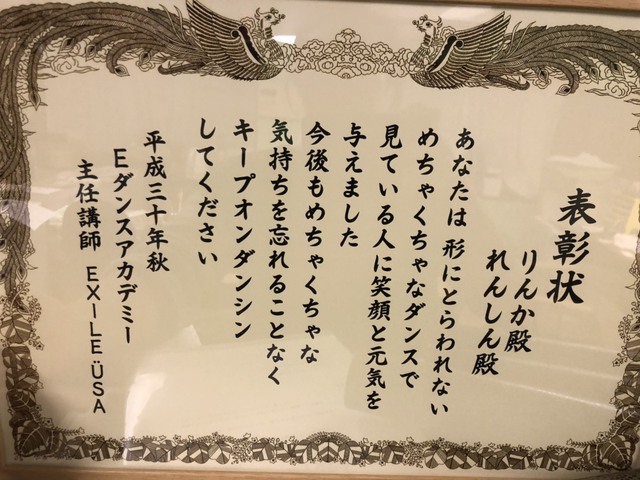 表彰状
りんか殿
れんしん殿
あなたは 形にとらわれない
めちゃくちゃなダンスで
見ている人に笑顔と元気を
与えました
今後もめちゃくちゃな
気持ちを忘れることなく
キープオンダンシン
してください
平成三十年秋
Eダンスアカデミー
主任講師 EXILE ÜSA